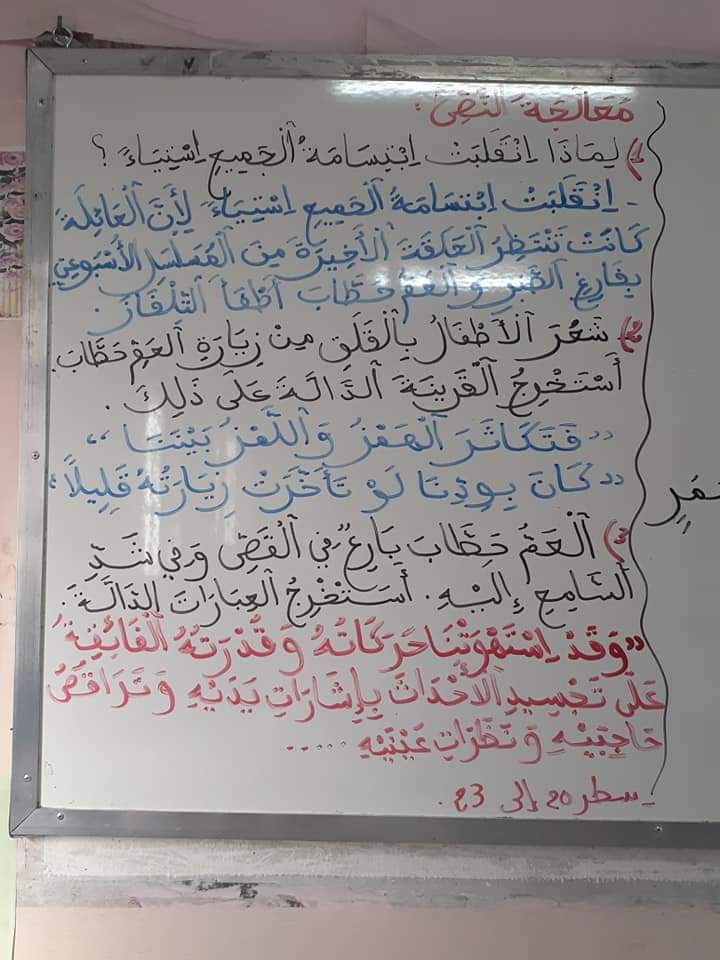 مُعَالَجَةُ النَّصِّ :
1) لِمَاذَا اِنْقَلَبَتْ اِبْتِسَامَةُ الْجَمِيعِ اِسْتِيَاءً ؟
- اِنْقَلَبَتْ اِبْتِسَامَةُ الْجَمِيعِ اِسْتِيَاءً لِأَنَّ الْعَائِلَةَ
كَانَتْ تَنْتَظِرُ الْحَلَقَةَ الْأَخِيرَةَ مِنَ الْمُسَلْسَلِ الْأُسْبُوعِيِّ
بِفَارِغِ الصَّبْرِ وَ الْعَمُّ حَطَّابَ أَطْفَأَ التِّلْفَازَ.
2) شَعُرَ الْأَطْفَالُ بِالْقَلَقِ مِنْ زِيَارَةِ الْعَمِّ حَطَّاب.
أَسْتَخْرِجُ الْقَرِينَةَ الدَّالَةَ عَلَى ذَلِكَ .
"فَتَكَاثَرَ الْهَمْزُ وَ اللَّمْزُ بَيْنَنَا"
"كَانَ بِوِدِّنَا لَوْ تَأَخَّرَتْ زِيَارَتُهُ قَلِيلًا"
3) الْعَمُّ حَطَّابَ بَارِعٌ فِي الْقَصِّ وَ فِي شَدِّ
السَّامِعِ إِلَيْهِ . أَسْتَخْرِجُ الْعِبَارَاتَ الدَّالَةَ.
"وَقَدْ اِسْتَهْوَتْنَا حَرَكَاتُهُ وَ قُدْرَتُهُ الْفَائِقَةُ
عَلَى تَجْسِيدِ الْأَحْدَاثَ بِإِشَارَاتِ يَدَيْهِ وَ تَرَاقُصُ
حَاجِبَيْهِ وَ نَظَرَاتِ عَيْنَيْهِ .....
- سطر 20 إلى 23 .
مَرِ